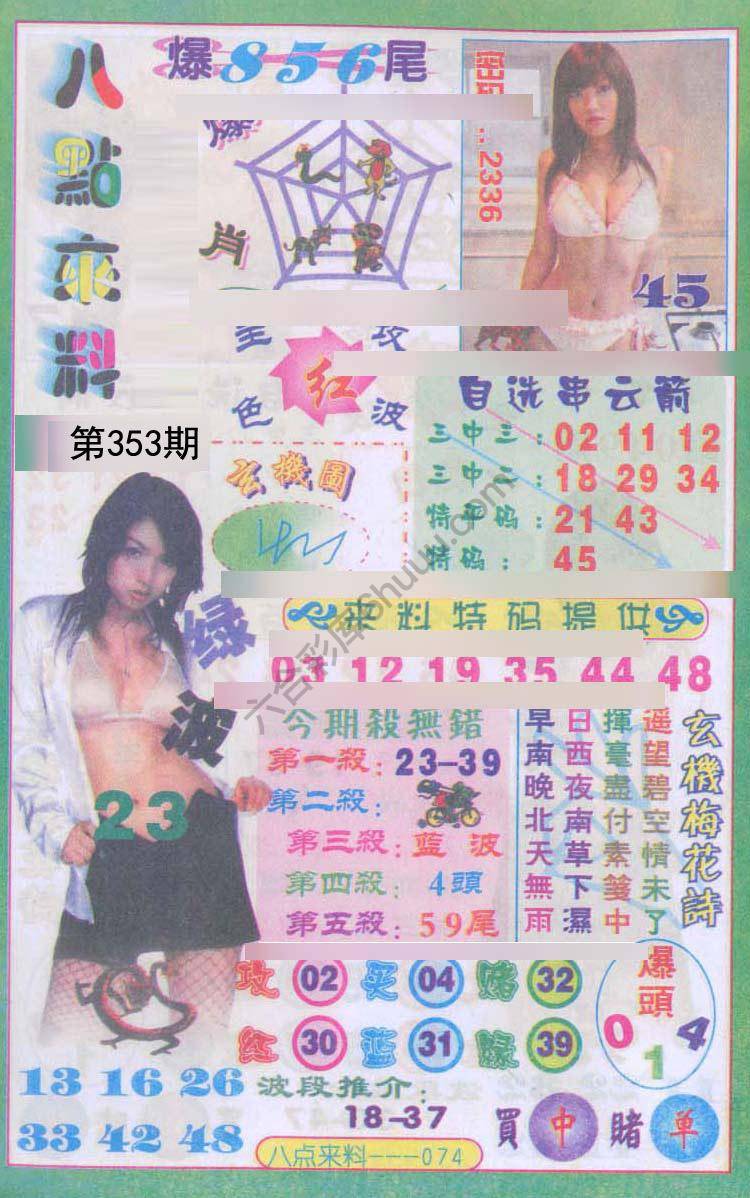 八點來料
爆856尾
爆
肖
2336
45
全攻
红
色波
第353期
玄機圖
自选串云箭
三中三：02 11 12
三中二：18 29 34
特平码：21 43
特码：45
绿波
23
來料特码提供
03 12 19 35 44 48
今期殺無錯
第一殺：23-39
第二殺：
第三殺：蓝波
第四殺：4頭
第五殺：59尾
玄機梅花詩
遥望碧空情未了
揮毫盡付素箋中
日西夜南草下濕
早南晚北天無雨
攻 02 买 04 赌 32
红 30 蓝 31 緑 39
爆頭
0 1 4
13 16 26
33 42 48
波段推介：
18-37
買中賭单
八点来料---074
六合彩库6huuu.com